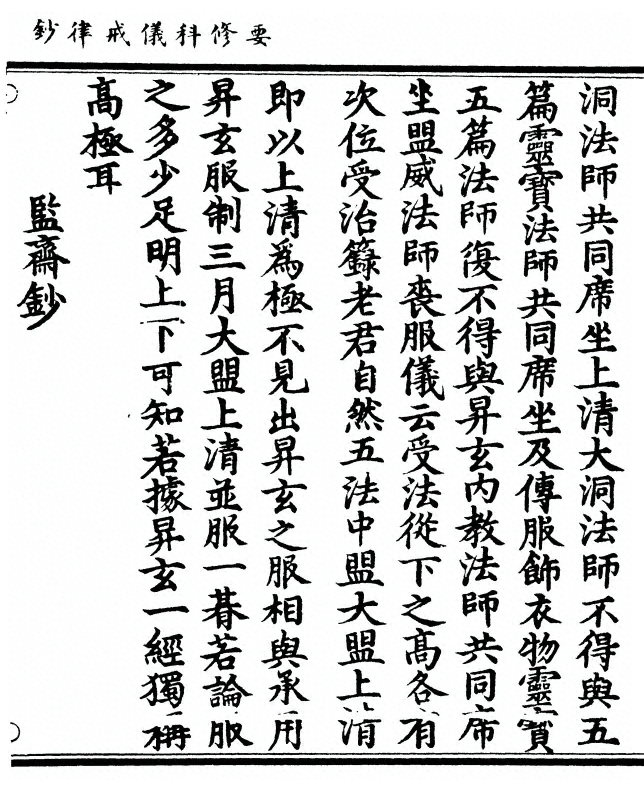 要修科儀戒律鈔
洞法師共同席坐上清大洞法師不得與五
篇靈寶法師共同席坐及傳服飾衣物靈寶
五篇法師復不得與昇玄內教法師共同席
坐盟威法師喪服儀云受法從下之高各有
次位受治籙老君自然五法中盟大盟上清
即以上清為極不見出昇玄之服相與承用
昇玄服制三月大盟上清並服一朞若論服
之多少足明上下可知若據昇玄一經獨稱
高極耳
監齋鈔